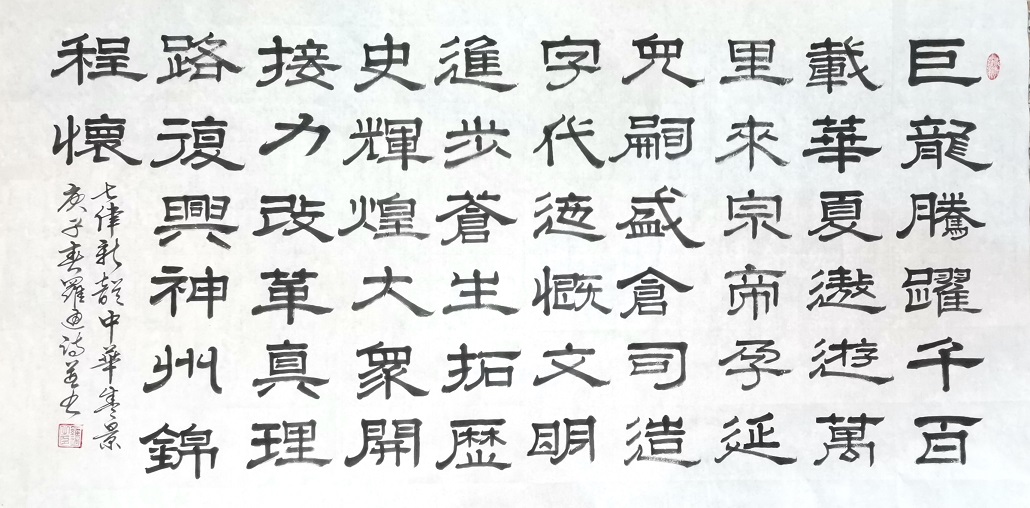 巨龍騰躍千百
載華夏遨遊萬
里來宗帝孕延
兒嗣盛倉司造
字代慨文明
進步蒼生拓歷
史輝煌大眾開
接力改革真理
路復興神州錦
程懷
七律新韻中華盛景
庚子春羅詩並書